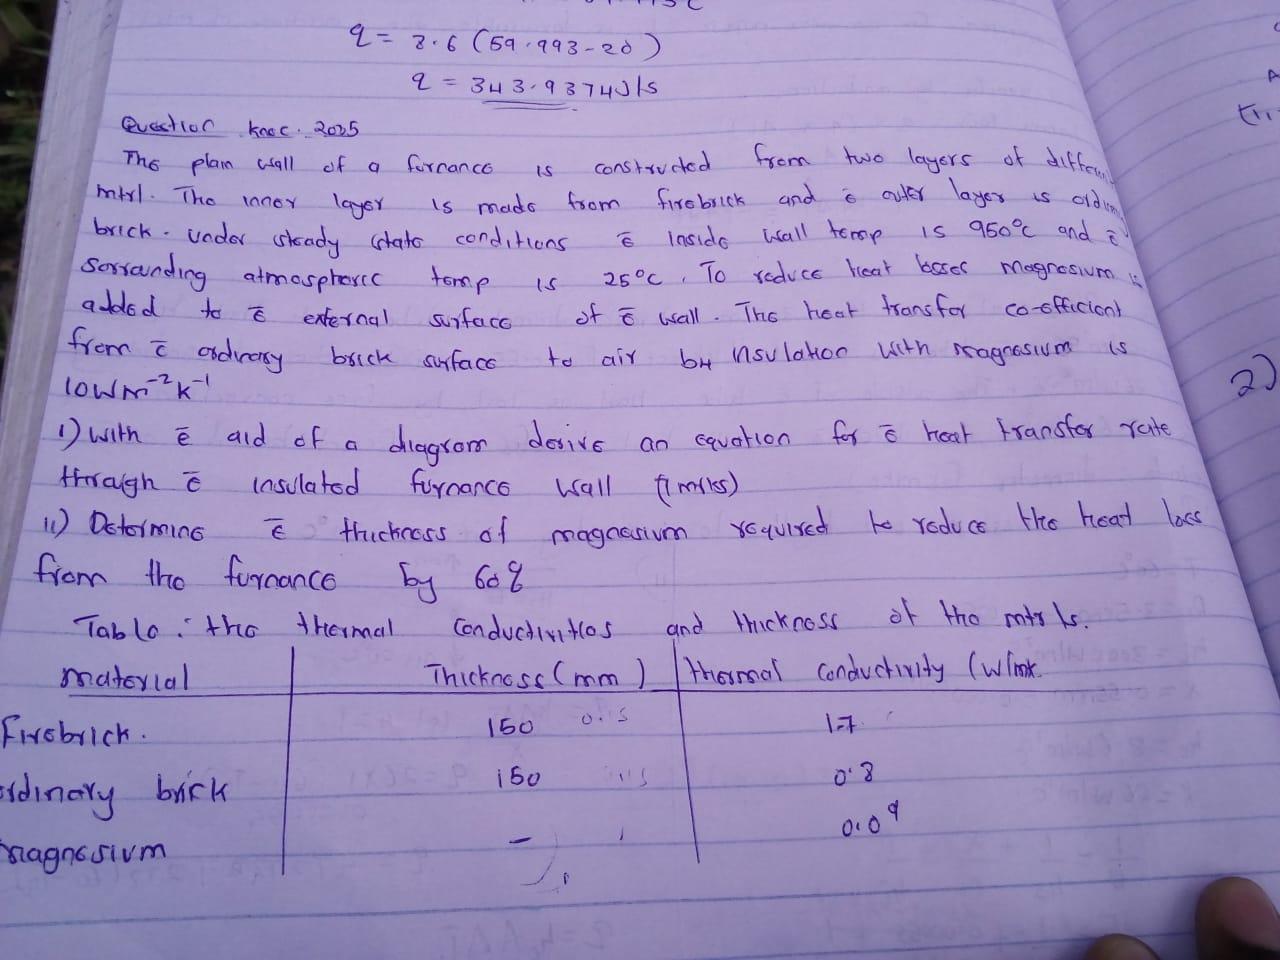 q = 8.6 (59.993-20)
q = 343.9374 J/s
Question knec. 2025
The plain wall of a furnance is constructed from two layers of different
mtrl. The inner layer is made from firebrick and ē outer layer is
brick. Under steady state conditions ē inside wall temp is 950°C and ē
sorranding atmospheric temp is 25°C. To reduce heat losses magnesium is
added to ē external surface of ē wall. The heat transfer co-efficient
from ē ordinary brick surface to air by insulation with magnesium is
10Wm⁻²K⁻¹
i) With ē aid of a diagram derive an equation for ē heat transfer rate
through ē insulated furnance wall
ii) Determine ē thickness of magnesium required to reduce the heat loss
from the furnance by 60%
Table: the thermal conductivities and thickness of the mtrls.
material Thickness (mm) thermal conductivity (W/mk
Firebrick. 150 1.7
brick 150 0.8
magnesium - 0.09
2)